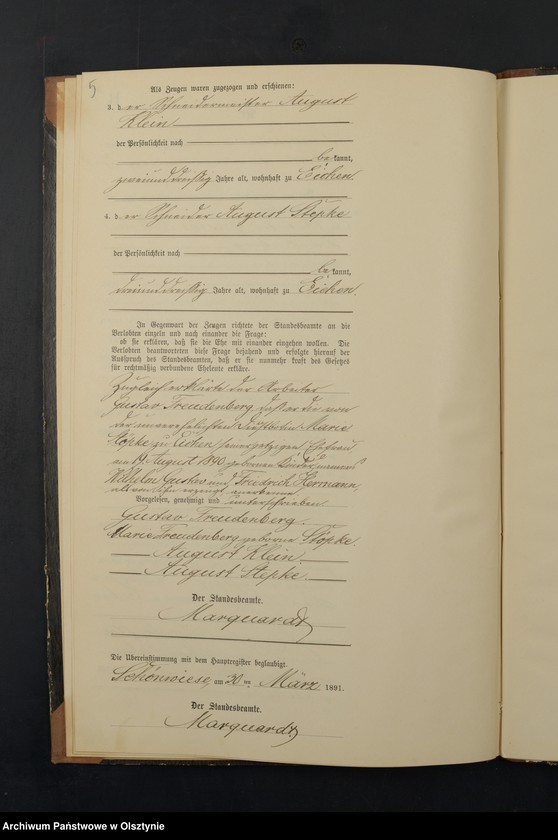 5
Als Zeugen waren zugezogen und erschienen:
3. der Schneidermeister August
Klein
der Persönlichkeit nach
bekannt,
zweiunddreißig Jahre alt, wohnhaft zu Eichen.
4. der Schneider August Stepke
der Persönlichkeit nach
bekannt,
dreiunddreißig Jahre alt, wohnhaft zu Eichen.
In Gegenwart der Zeugen richtete der Standesbeamte an die
Verlobten einzeln und nach einander die Frage:
ob sie erklären, daß sie die Ehe mit einander eingehen wollen. Die
Verlobten beantworteten diese Frage bejahend und erfolgte hierauf der
Ausspruch des Standesbeamten, daß er sie nunmehr kraft des Gesetzes
für rechtmäßig verbundene Eheleute erkläre.
Zugleich erklärte der Arbeiter
Gustav Freudenberg, daß er die von
der unverehelichten Marie
Stöpke zu Eichen, seiner jetzigen Ehefrau,
am 19. August 1890 geborenen Kinder namens
Wilhelm Gustav und Friedrich Hermann,
als von ihm erzeugt anerkenne
Vorgelesen, genehmigt und unterschrieben
Gustav Freudenberg.
Marie Freudenberg geborne Stöpke.
August Klein
August Stepke.
Der Standesbeamte.
Marquardt
Die Übereinstimmung mit dem Hauptregister beglaubigt.
Schönwiese, am 30ten März 1891.
Der Standesbeamte.
Marquardt
Archiwum Państwowe w Olsztynie